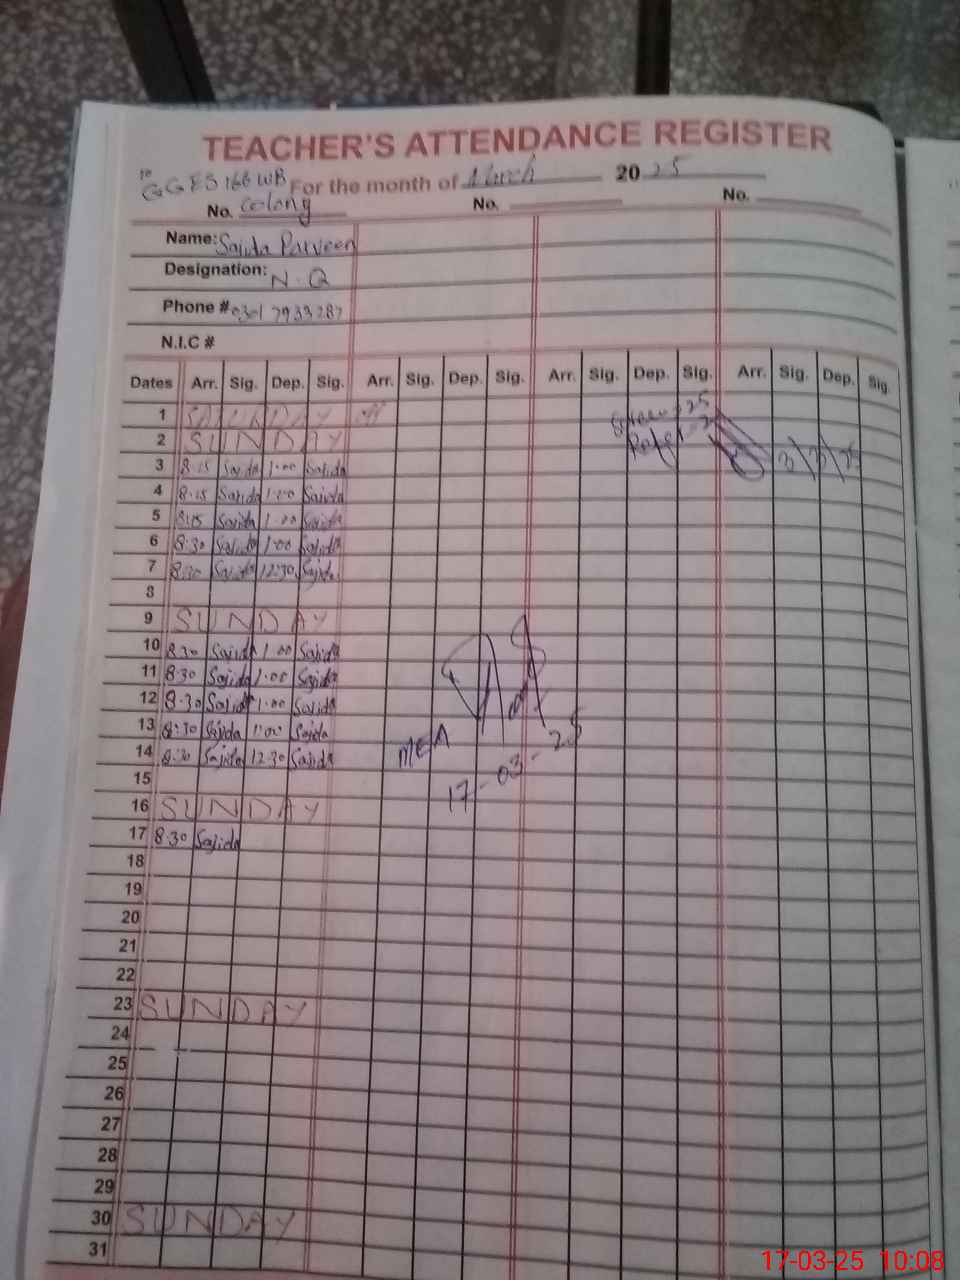 TEACHER'S ATTENDANCE REGISTER
GGES 166 WB For the month of March 2025
No. Colony No. No.
Name: Sajida Parveen
Designation: N.Q
Phone # 0301 7933287
N.I.C #
Dates Arr. Sig. Dep. Sig. Arr. Sig. Dep. Sig. Arr. Sig. Dep. Sig. Arr. Sig. Dep. Sig.
1 SATURDAY off
2 SUNDAY
3 8:15 Sajida 1:00 Sajida
4 8:15 Sajida 1:00 Sajida
5 8:15 Sajida 1:00 Sajida
6 8:30 Sajida 1:00 Sajida
7 8:30 Sajida 12:30 Sajida
8
9 SUNDAY
10 8:30 Sajida 1:00 Sajida
11 8:30 Sajida 1:00 Sajida
12 8:30 Sajida 1:00 Sajida
13 8:30 Sajida 1:00 Sajida
14 8:30 Sajida 12:30 Sajida
MEA
17-03-25
15
16 SUNDAY
17 8:30 Sajida
18
19
20
21
22
23 SUNDAY
24
25
26
27
28
29
30 SUNDAY
31
17-03-25 10:08